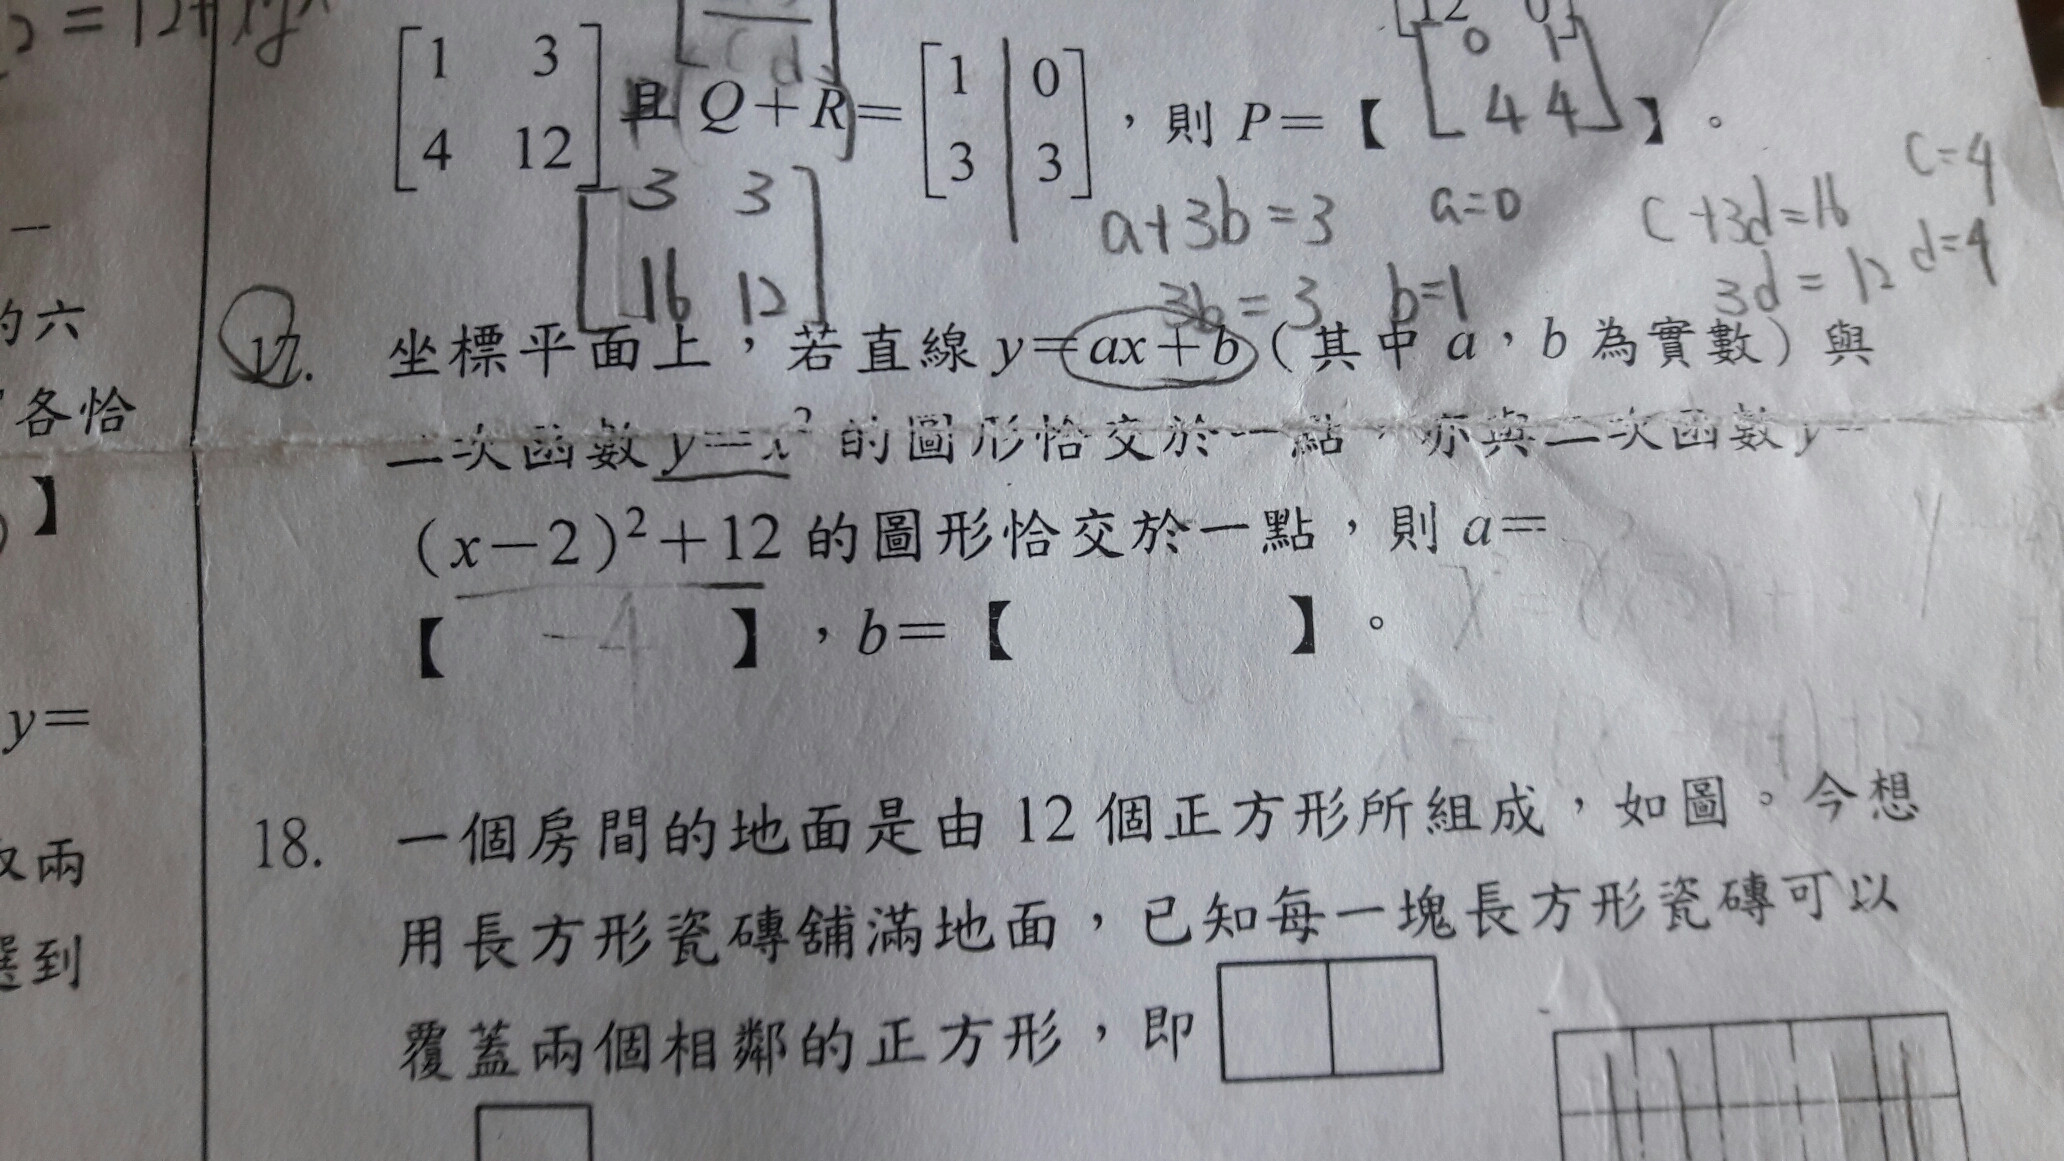 [1 3
4 12] 且 Q+R=[1 0
3 3],則 P=【[0 1
4 4]】。
[3 3
16 12]
a+3b=3 a=0
3b=3 b=1
c+3d=16 c=4
3d=12 d=4
17. 坐標平面上,若直線 y=ax+b(其中 a,b 為實數)與
二次函數 y=x² 的圖形恰交於一點,亦與二次函數 y=
(x-2)²+12 的圖形恰交於一點,則 a=
【 -4 】,b=【 】。
18. 一個房間的地面是由 12 個正方形所組成,如圖。今想
用長方形瓷磚舖滿地面,已知每一塊長方形瓷磚可以
覆蓋兩個相鄰的正方形,即
的六
各恰
】
y=
兩
到